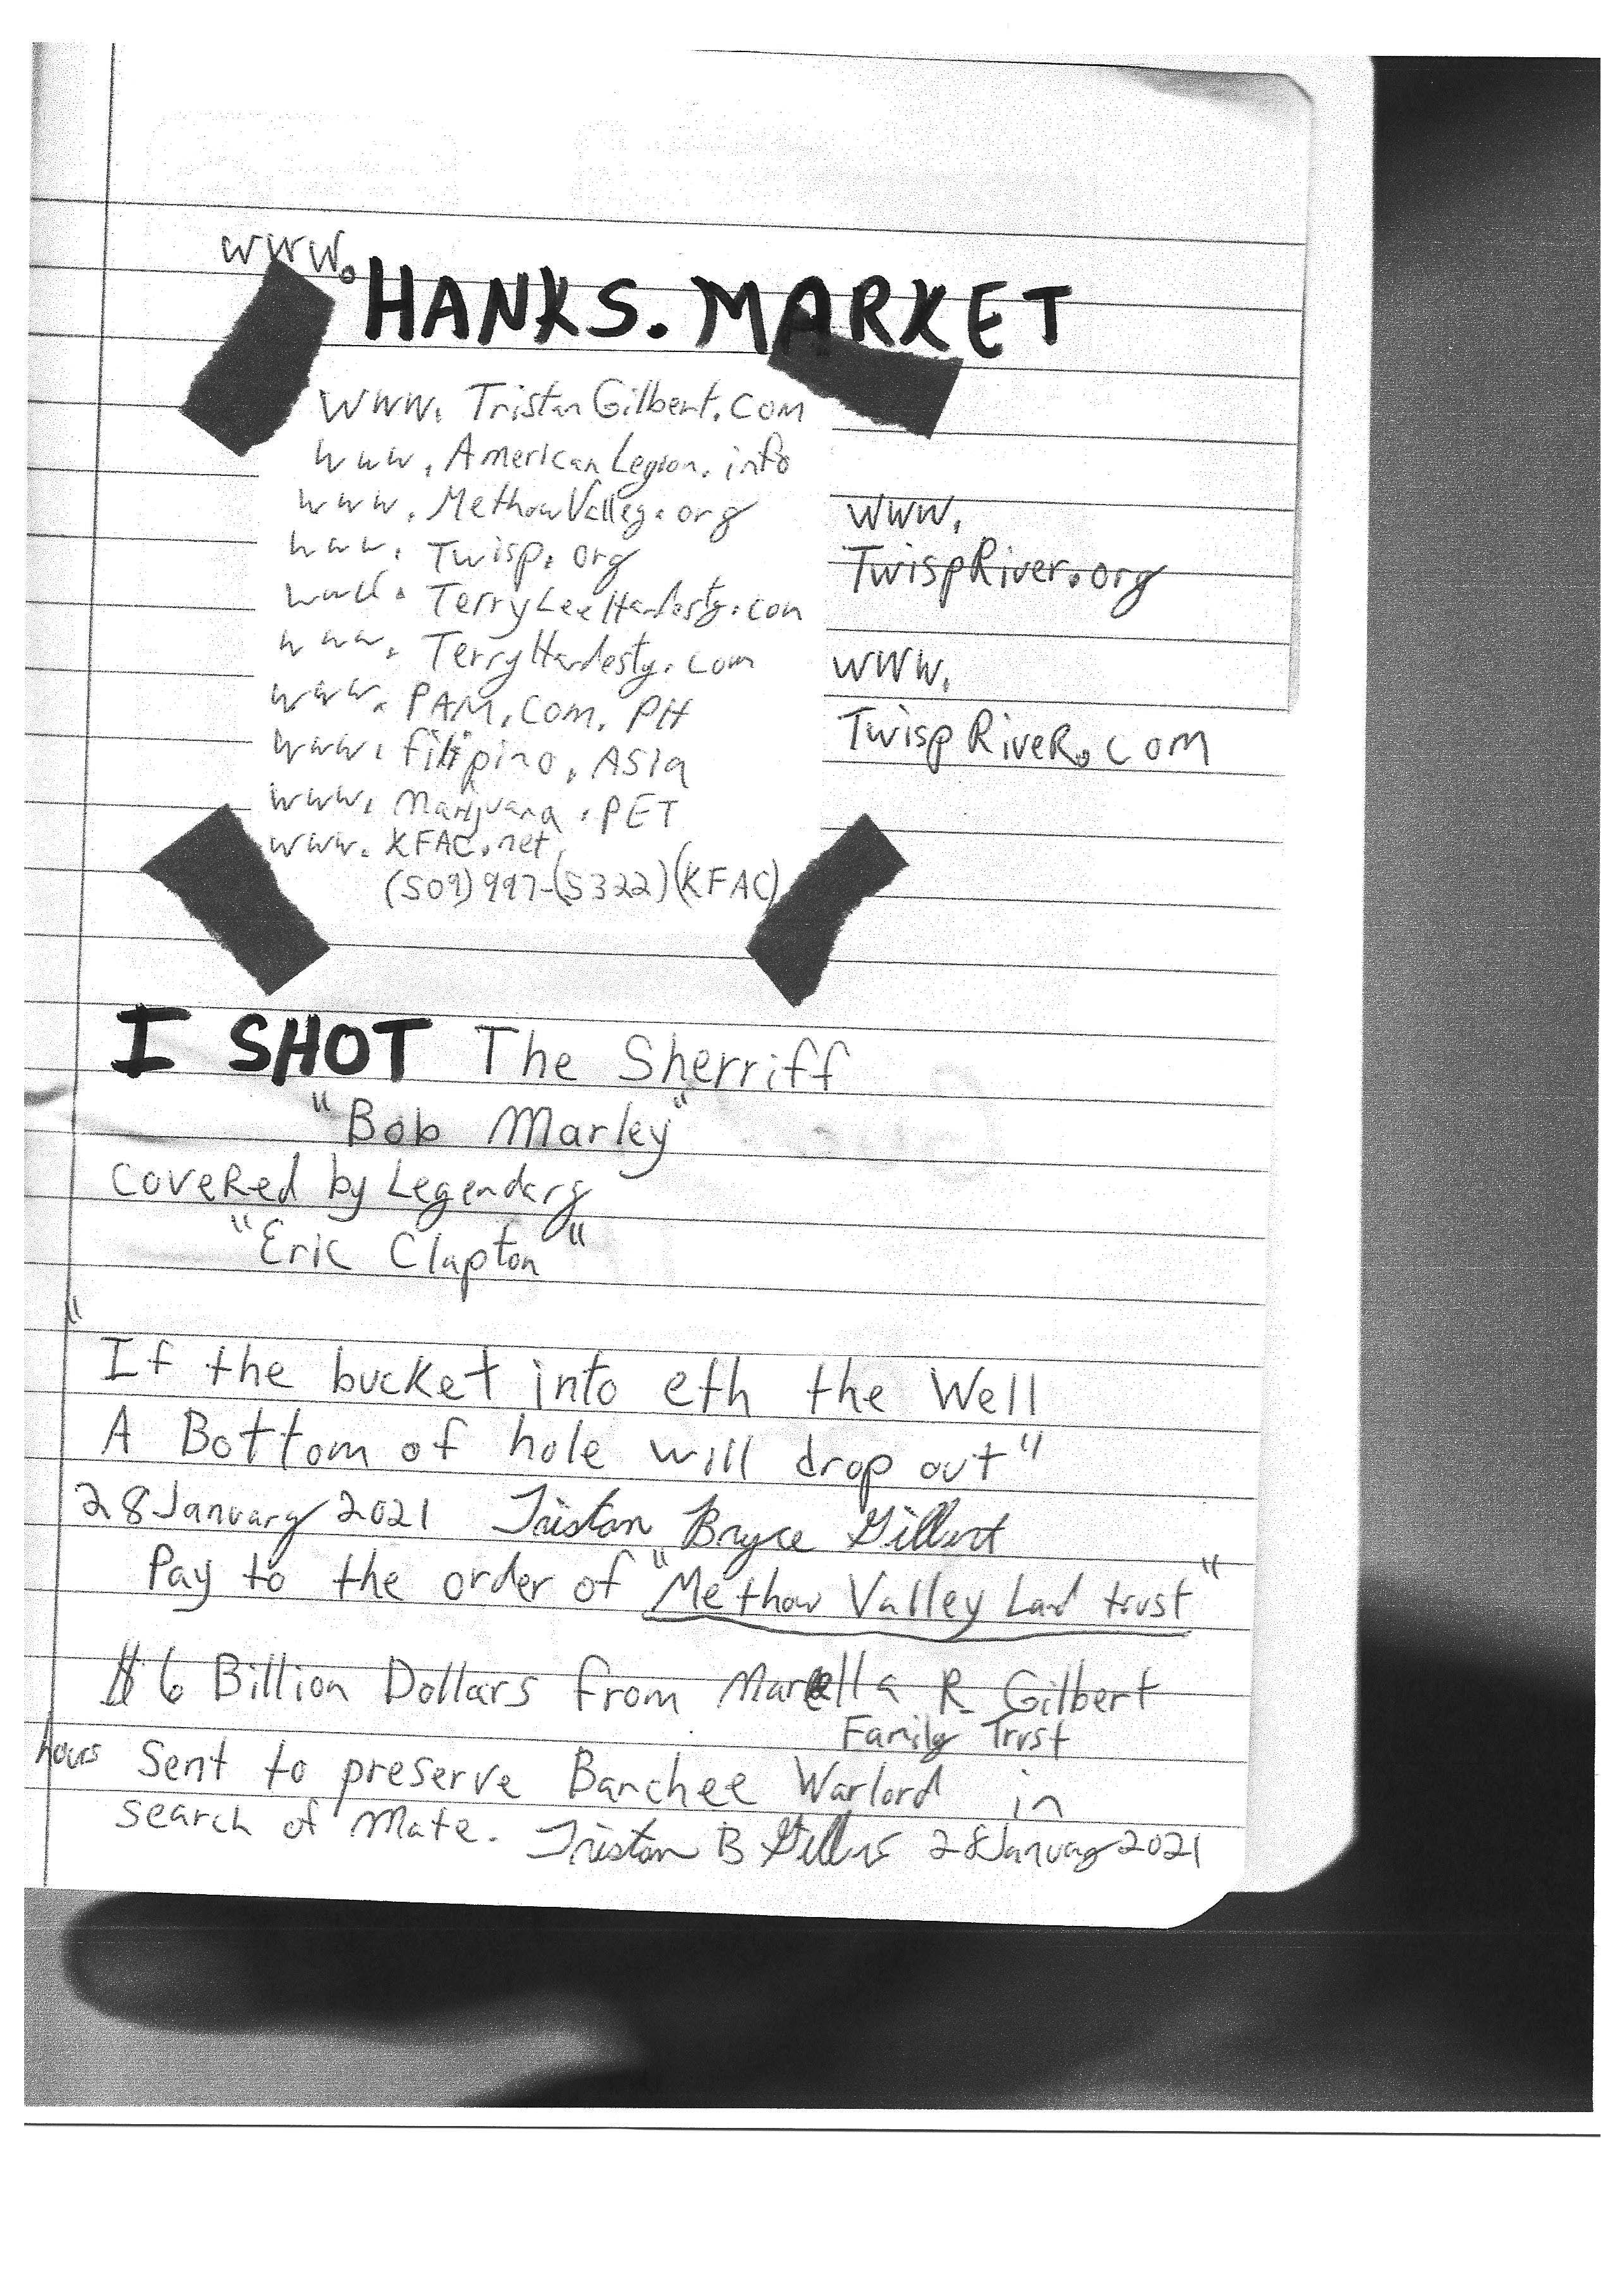 www.
HANKS. MARKET
www. TristanGilbert.com
www. AmericanLegion. info
www. MethowValley. org
www. Twisp. org
www. TerryLeeHardesty. com
www. TerryHardesty. com
www. PAM. Com. PH
www. filipino. ASIA
www. Marijuana. PET
www. KFAC. net
(509) 997-(5322)(KFAC)
www.
TwispRiver.org
www.
TwispRiveR.com
I SHOT The Sherriff
"Bob Marley"
coveRed by Legendary
"Eric Clapton"
"If the bucket into eth the Well
A Bottom of hole will drop out"
28 January 2021 Tristan Bryce Gilbert
Pay to the order of "Methow Valley Land trust"
$6 Billion Dollars from Marella R Gilbert
Family Trust
hours Sent to preserve Banchee Warlord in
search of Mate. Tristan B Gilbert 28 January 2021